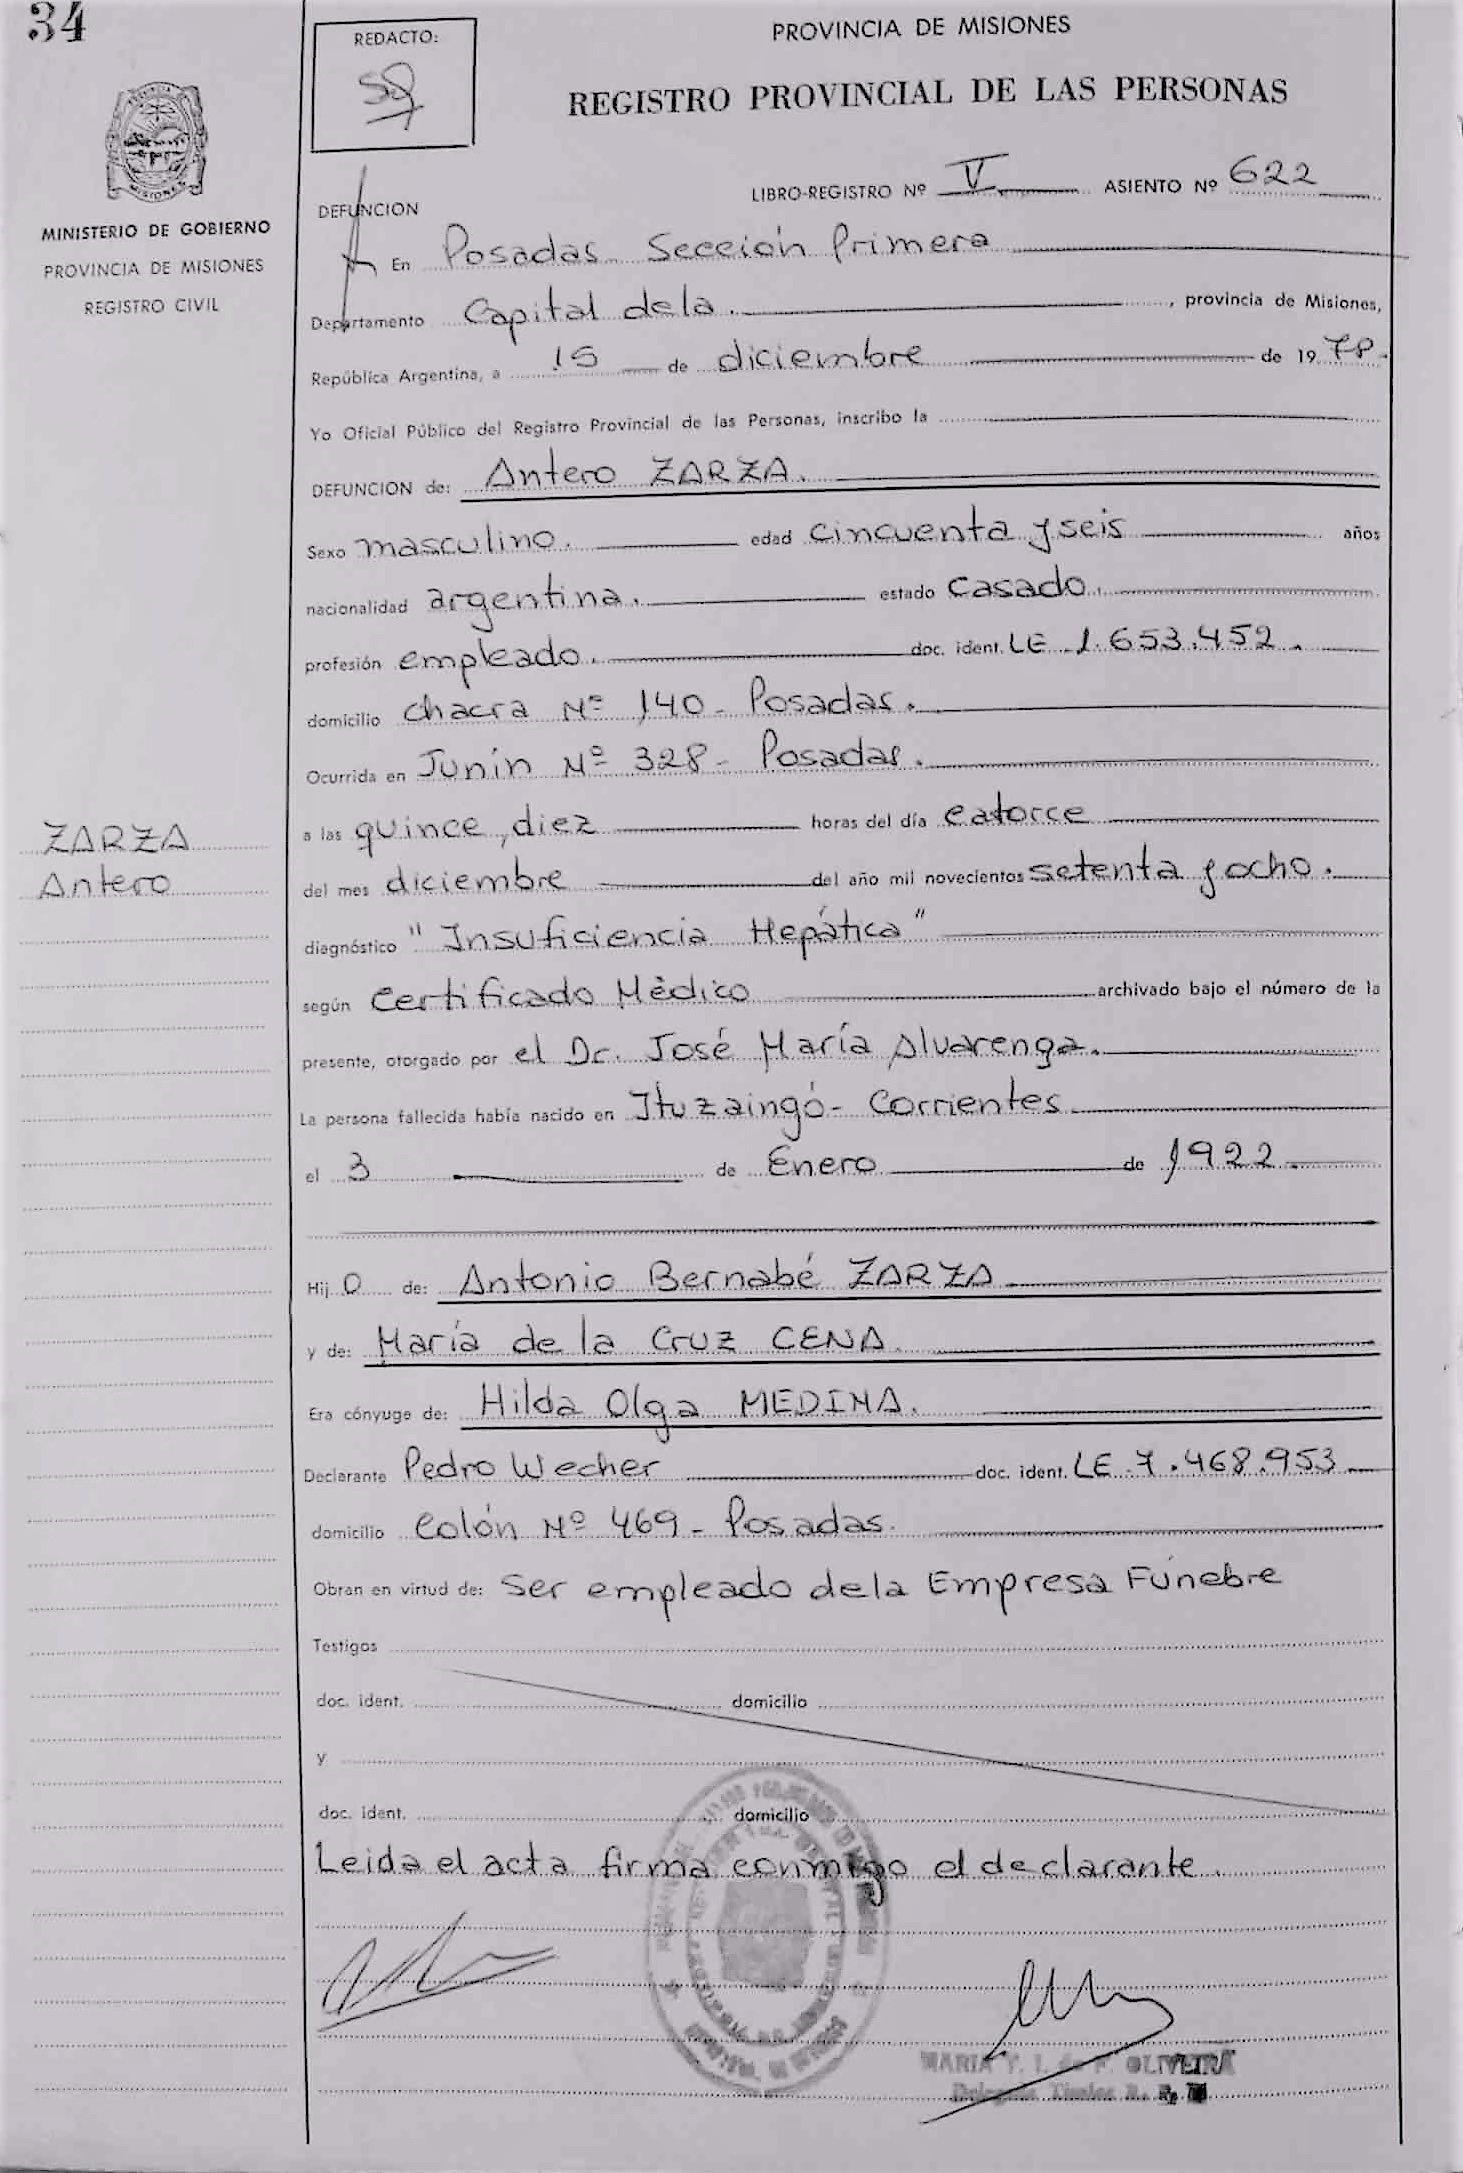 34
REDACTO:
PROVINCIA DE MISIONES
REGISTRO PROVINCIAL DE LAS PERSONAS
MISIONES
MINISTERIO DE GOBIERNO
PROVINCIA DE MISIONES
REGISTRO CIVIL
LIBRO-REGISTRO Nº V ASIENTO Nº 622
DEFUNCION
En Posadas Sección Primera
Departamento Capital dela , provincia de Misiones,
República Argentina, a 15 de diciembre de 1978.
Yo Oficial Público del Registro Provincial de las Personas, inscribo la
DEFUNCION de: Antero ZARZA.
Sexo masculino. edad cincuenta y seis años
nacionalidad argentina. estado casado.
profesión empleado. doc. ident. LE 1.653.452.
domicilio chacra Nº 140 - Posadas.
Ocurrida en Junín Nº 328 - Posadas.
a las quince, diez horas del día catorce
del mes diciembre del año mil novecientos setenta y ocho.
diagnóstico "Insuficiencia Hepática"
según Certificado Médico archivado bajo el número de la
presente, otorgado por el Dr. José María Alvarenga.
La persona fallecida había nacido en Ituzaingó - Corrientes
el 3 de Enero de 1922
Hij o de: Antonio Bernabé ZARZA
y de: María de la Cruz CENA
Era cónyuge de: Hilda Olga MEDINA.
Declarante Pedro Wecher doc. ident. LE 7.468.953
domicilio Colón Nº 469 - Posadas.
Obran en virtud de: Ser empleado dela Empresa Fúnebre
Testigos
doc. ident. domicilio
y
doc. ident. domicilio
Leida el acta firma conmigo el declarante.
MARIA OLIVEIRA
ZARZA
Antero